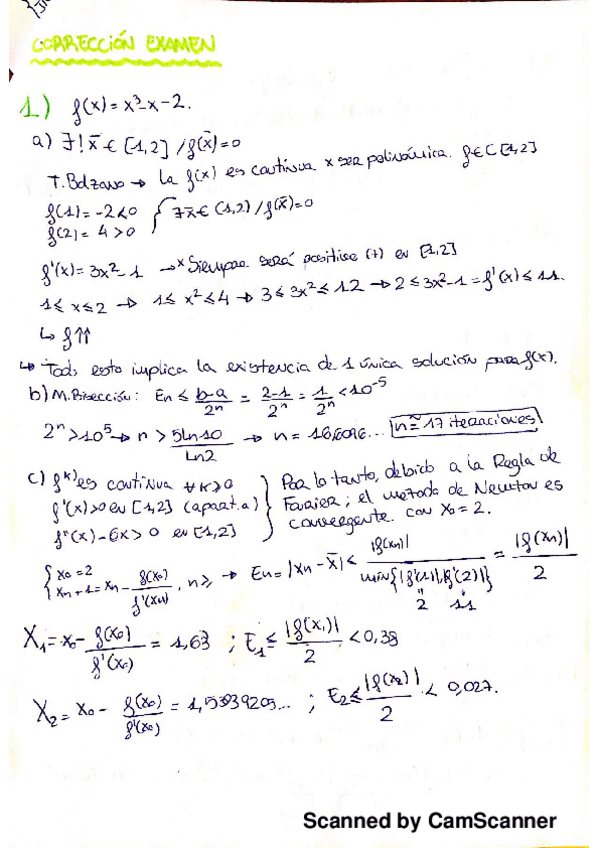 CORRECCIÓN EXAMEN
1) f(x) = x³-x-2.
a) ∃! x̄ ∈ [1,2] / f(x̄)=0
T. Bolzano → La f(x) es continua x ser polinómica. f ∈ C [1,2]
f(1) = -2 < 0 { ∃ x̄ ∈ (1,2) / f(x̄)=0
f(2) = 4 > 0
f'(x) = 3x²-1 → * Siempre será positiva (+) en [1,2]
1 ≤ x ≤ 2 → 1 ≤ x² ≤ 4 → 3 ≤ 3x² ≤ 12 → 2 ≤ 3x²-1 = f'(x) ≤ 11.
↳ f ⇈
↳ Todo esto implica la existencia de 1 única solución para f(x).
b) M. Bisección: En ≤ b-a/2ⁿ = 2-1/2ⁿ = 1/2ⁿ < 10⁻⁵
2ⁿ > 10⁵ → n > 5ln10/Ln2 → n = 16,6096... n ≈ 17 iteraciones
c) f^(k) es continua ∀ k ≥ 0
f'(x) > 0 en [1,2] (apart. a)
f''(x) = 6x > 0 en [1,2]
} Por lo tanto, debido a la Regla de
Fourier; el método de Newton es
convergente. con x₀ = 2.
{ x₀ = 2
xn+1 = xn - f(xn)/f'(xn), n ≥ → En = |xn - x̄| ≤ |f(xn)|/min{|f'(1)|,|f'(2)|} = |f(xn)|/2
2 11
X₁ = x₀ - f(x₀)/f'(x₀) = 1,63 ; E₁ ≤ |f(x₁)|/2 < 0,38
X₂ = x₀ - f(x₀)/f'(x₀) = 1,53939205... ; E₂ ≤ |f(x₂)|/2 < 0,027.
Scanned by CamScanner